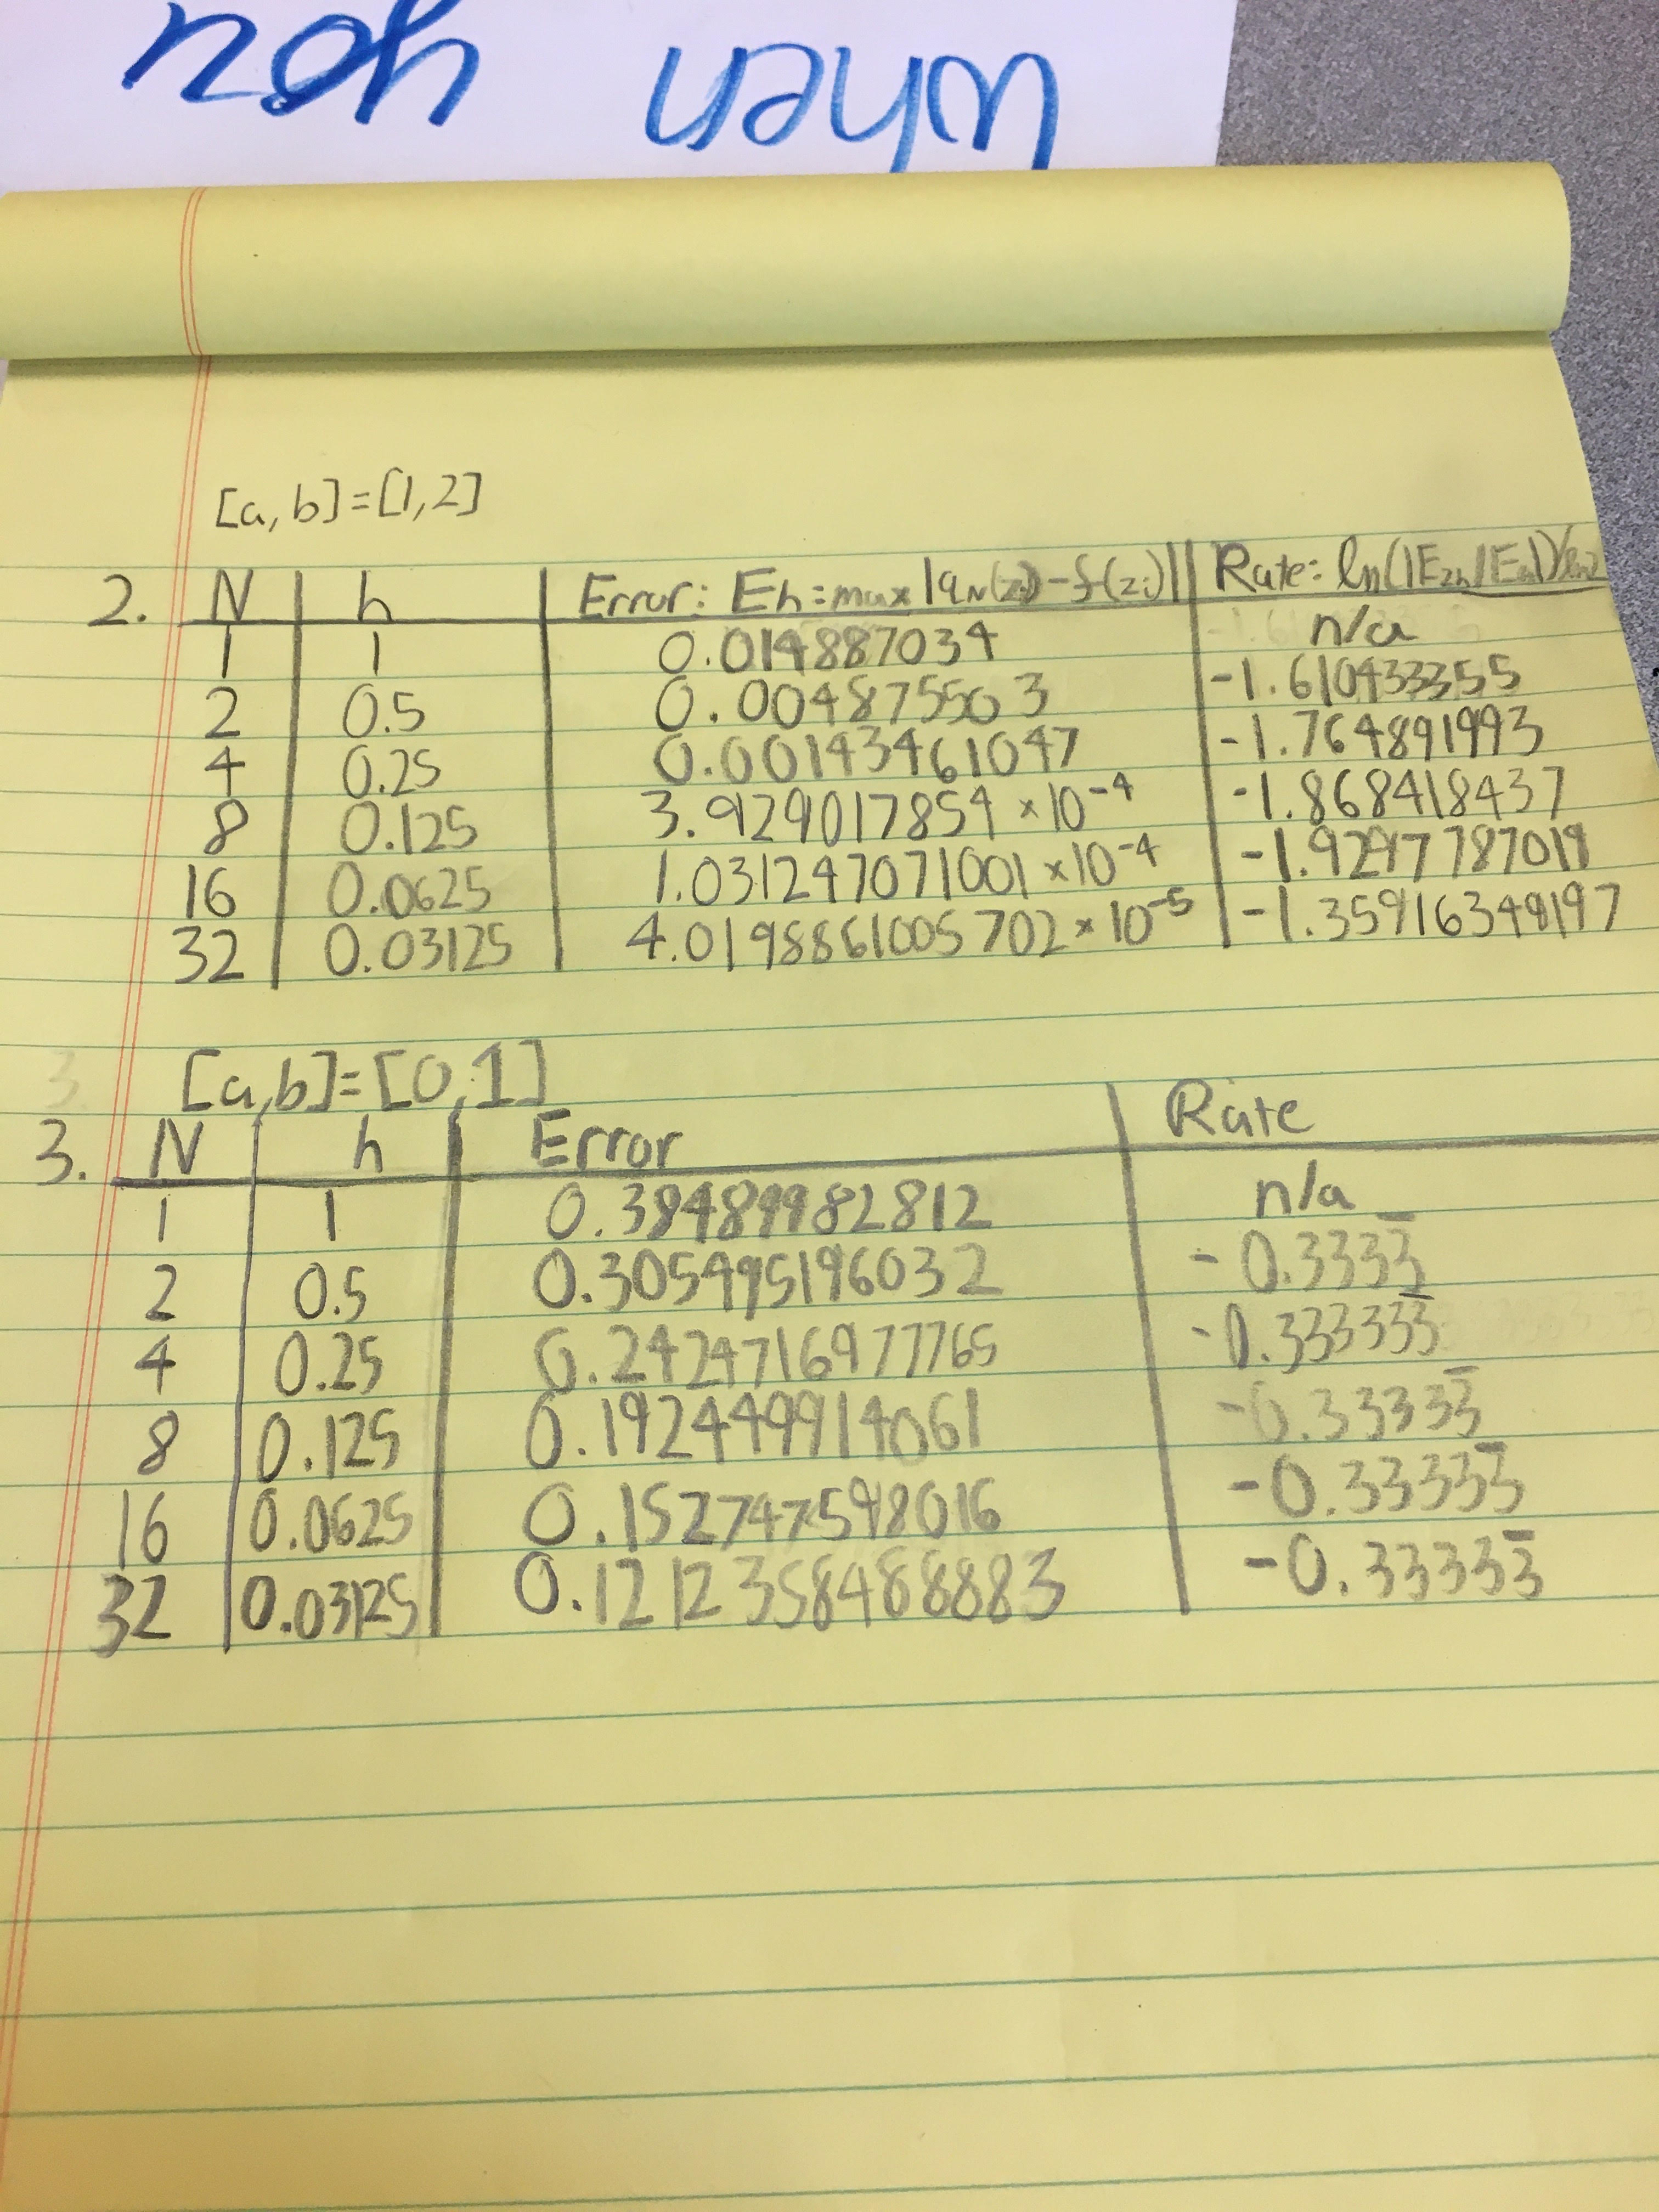 when you
[a,b]=[1,2]
2. N h Error: Eh=max |qN(zi)-f(zi)| Rate: ln(|E2h/Eh|)/ln2
1 1 0.014887034 n/a
2 0.5 0.004875503 -1.610433355
4 0.25 0.00143461047 -1.764891993
8 0.125 3.929017854 × 10⁻⁴ -1.868418437
16 0.0625 1.031247071001 × 10⁻⁴ -1.92977787019
32 0.03125 4.0198861005702 × 10⁻⁵ -1.35916348197
[a,b]=[0,1]
3. N h Error Rate
1 1 0.38489982812 n/a
2 0.5 0.305495196032 -0.3333̅
4 0.25 0.2424716977765 -0.333333̅
8 0.125 0.192449914061 -0.33333̅
16 0.0625 0.152747598016 -0.33333̅
32 0.03125 0.1212358488883 -0.33333̅